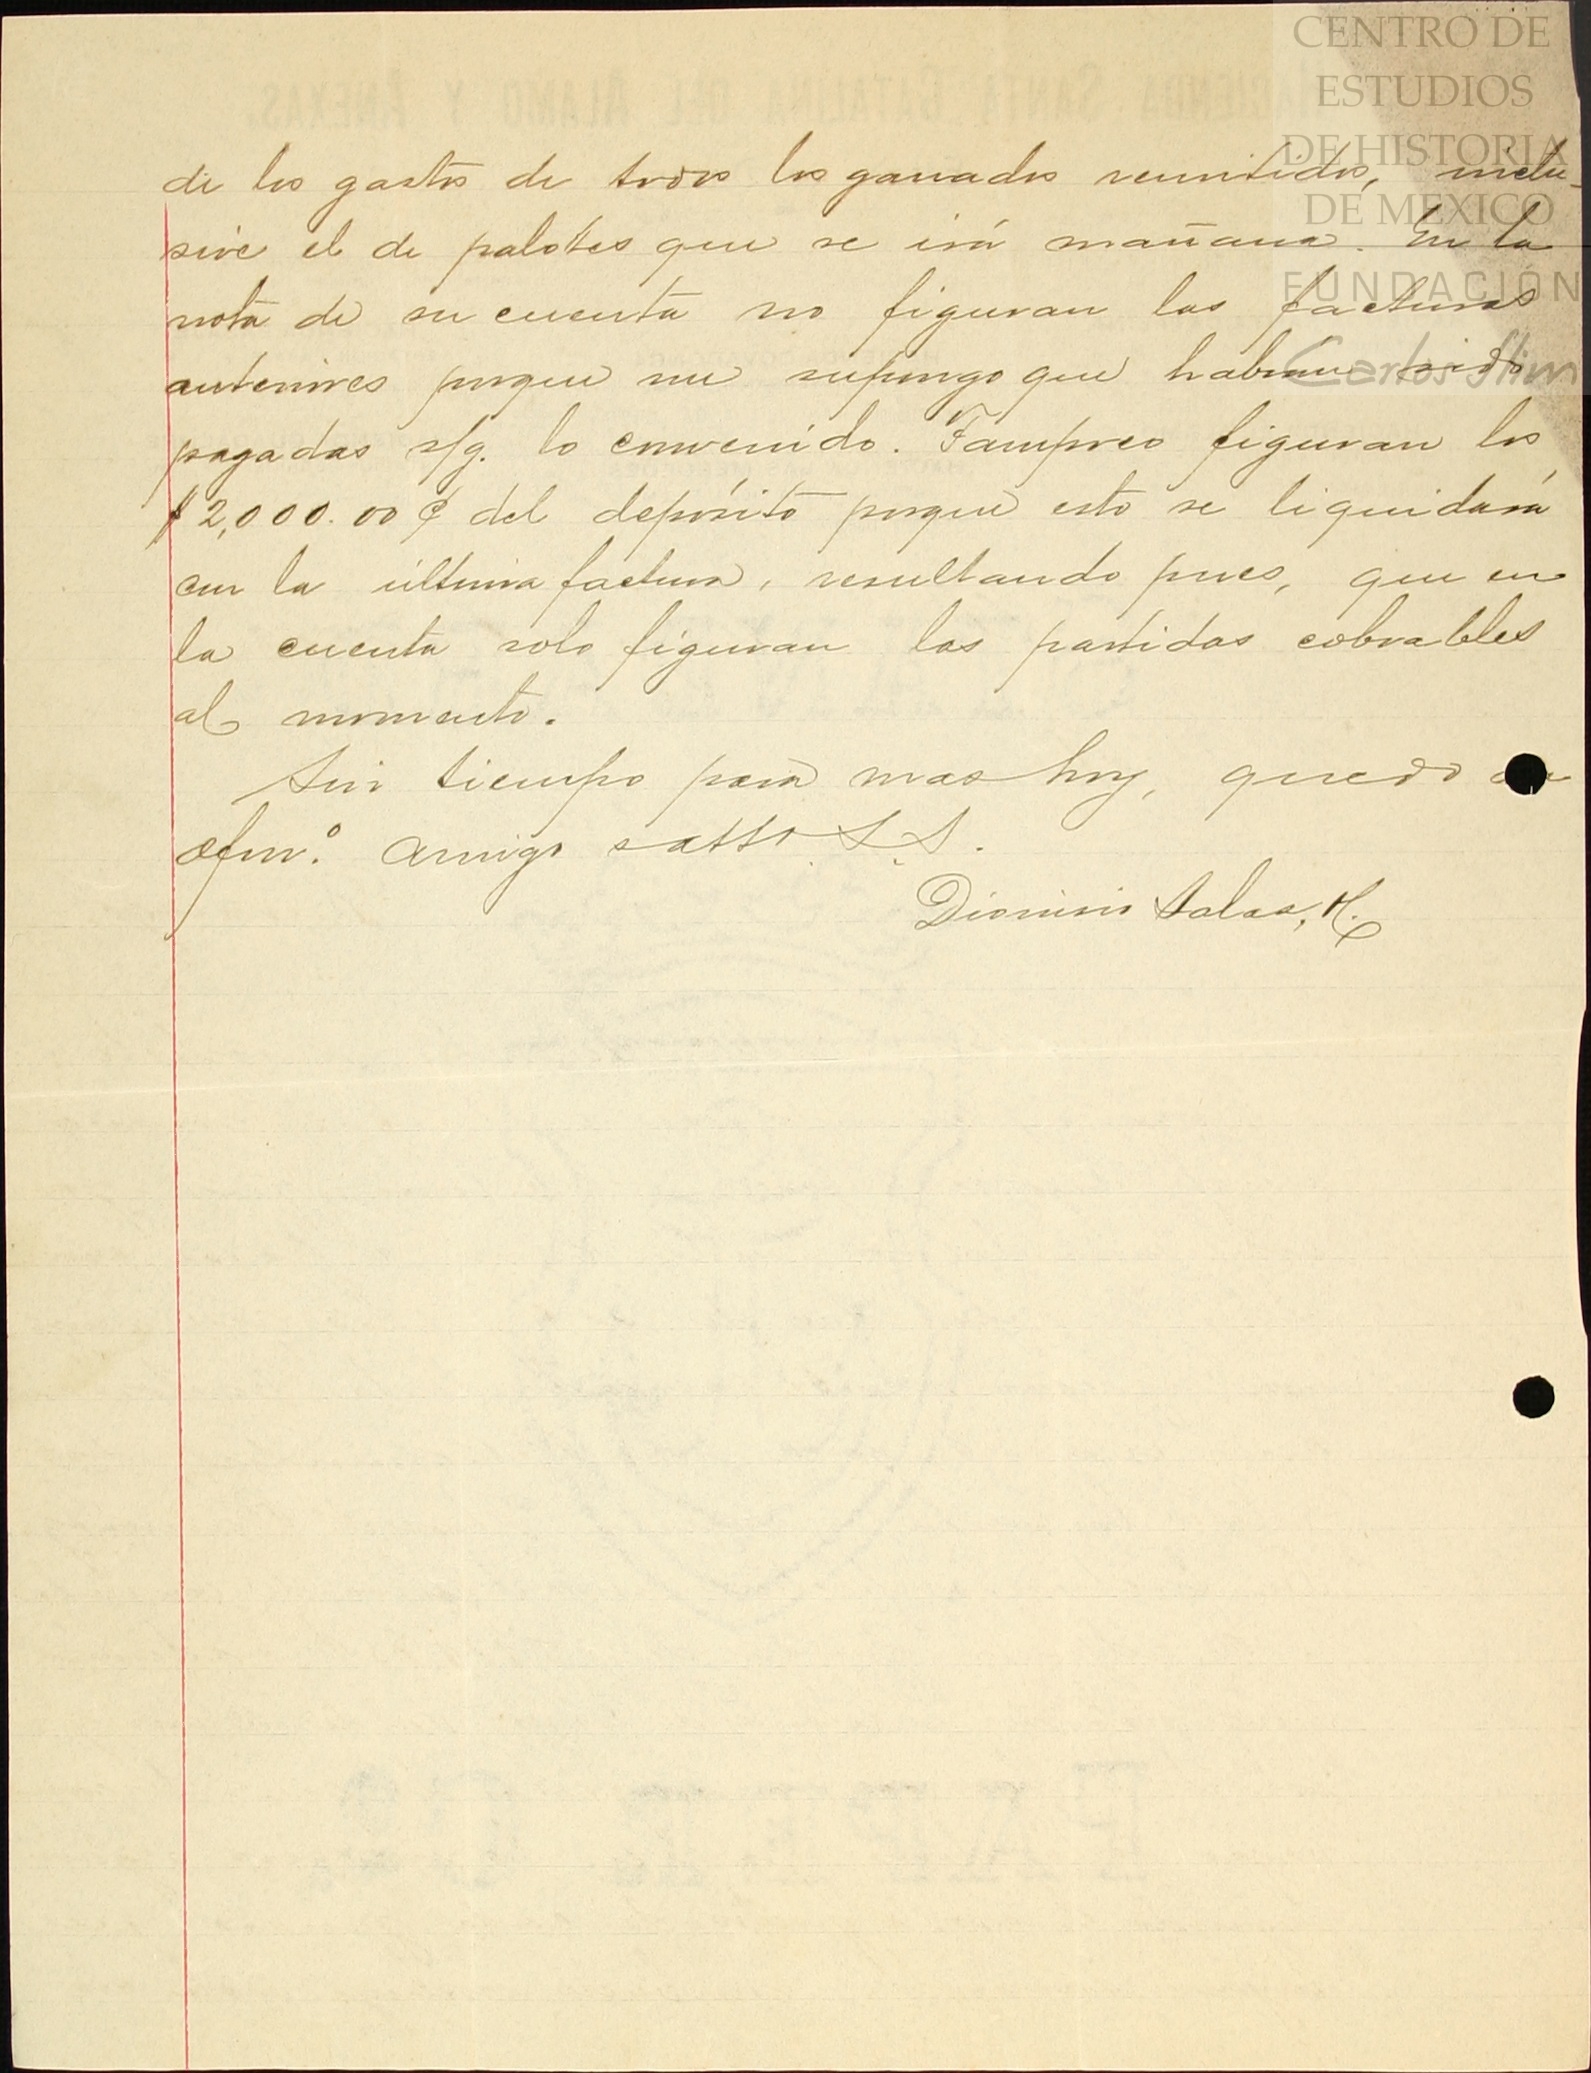 CENTRO DE
ESTUDIOS
DE HISTORIA
DE MEXICO
FUNDACIÓN
Carlos Slim
SANTA CATALINA DEL ALAMO Y ANEXAS.
de los gastos de todos los ganados remitidos, inclu-
sive el de palotes que se irá mañana. En la
nota de su cuenta no figuran las facturas
anteriores porque me supongo que habrán sido
pagadas s/g. lo convenido. Tampoco figuran los
$2,000.00 ¢ del depósito porque esto se liquidará
con la última factura, resultando pues, que en
la cuenta solo figuran las partidas cobrables
al momento.
Sin tiempo para mas hoy, quedo
afmº. amigo atto S.S.
Dionisio Salas, H.